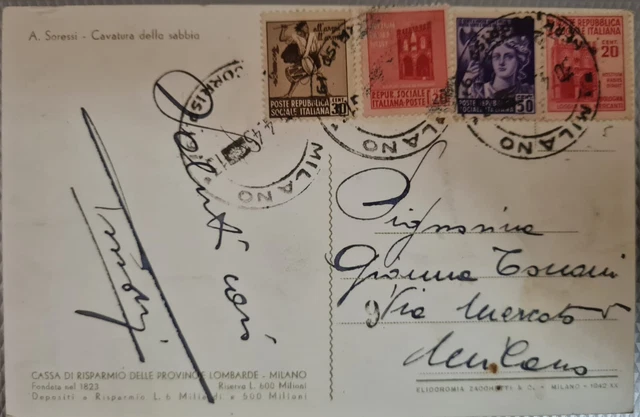 A. Soressi - Cavatura della sabbia
POSTE REPUBBLICA
SOCIALE ITALIANA
CENT.
30
REPUB. SOCIALE
ITALIANA-POSTE
20
POSTE REPUBBLICA
SOCIALE ITALIANA
50
POSTE REPUBBLICA
SOCIALE ITALIANA
CENT
20
MILANO
MILANO
MILANO
Saluti cari
Signorina
Gianna
Via Mercato 5
Milano
CASSA DI RISPARMIO DELLE PROVINCIE LOMBARDE - MILANO
Fondata nel 1823 Riserva L. 600 Milioni
Depositi e Risparmio L. 6 Miliardi e 500 Milioni
ELIOGONIA & C. - MILANO - 1942 XX
5